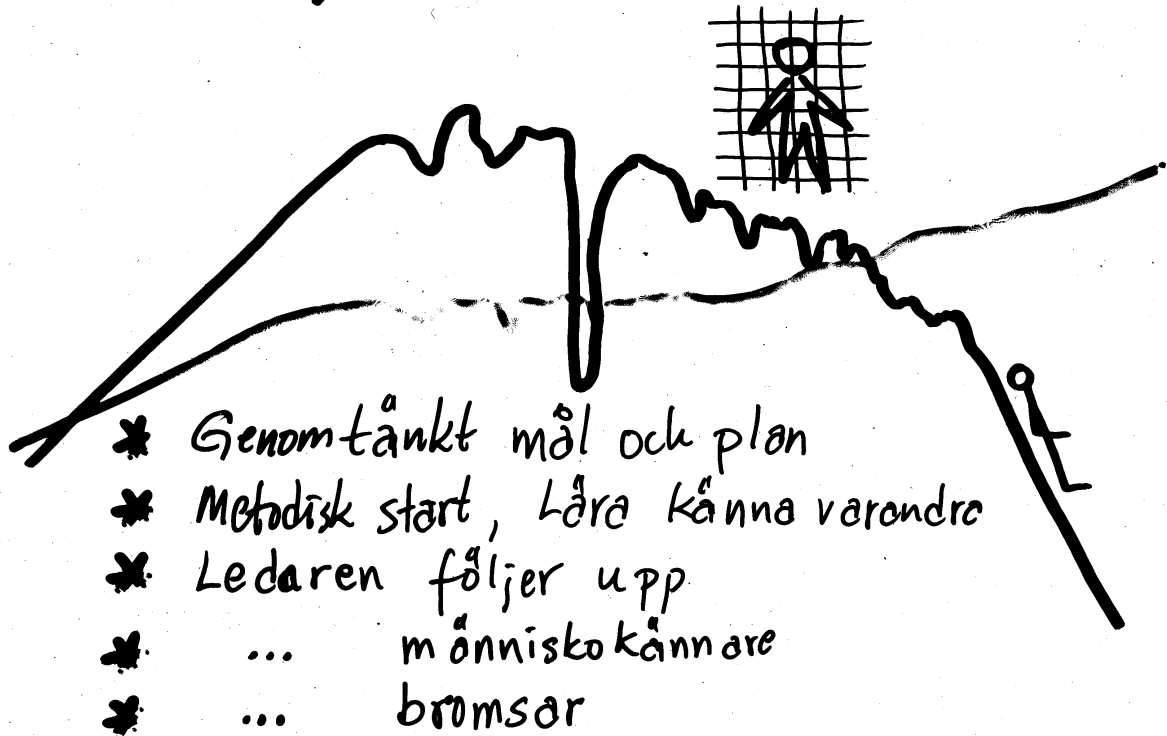 * Genomtänkt mål och plan
* Metodisk start, Lära känna varandra
* Ledaren följer upp
* ... människokännare
* ... bromsar